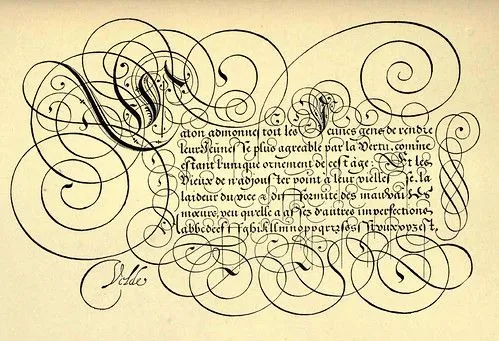 Caton admonnestoit les Jeunes gens de rendre
leur Jeunesse plus agreable par la Vertu, comme
estant l'unique ornement de cest âge: Et les
Vieux de n'adjouster point à leur viellesse la
laideur du vice & difformité des mauvaises
moeurs, veu qu'elle a assez d'autres imperfections.
Velde